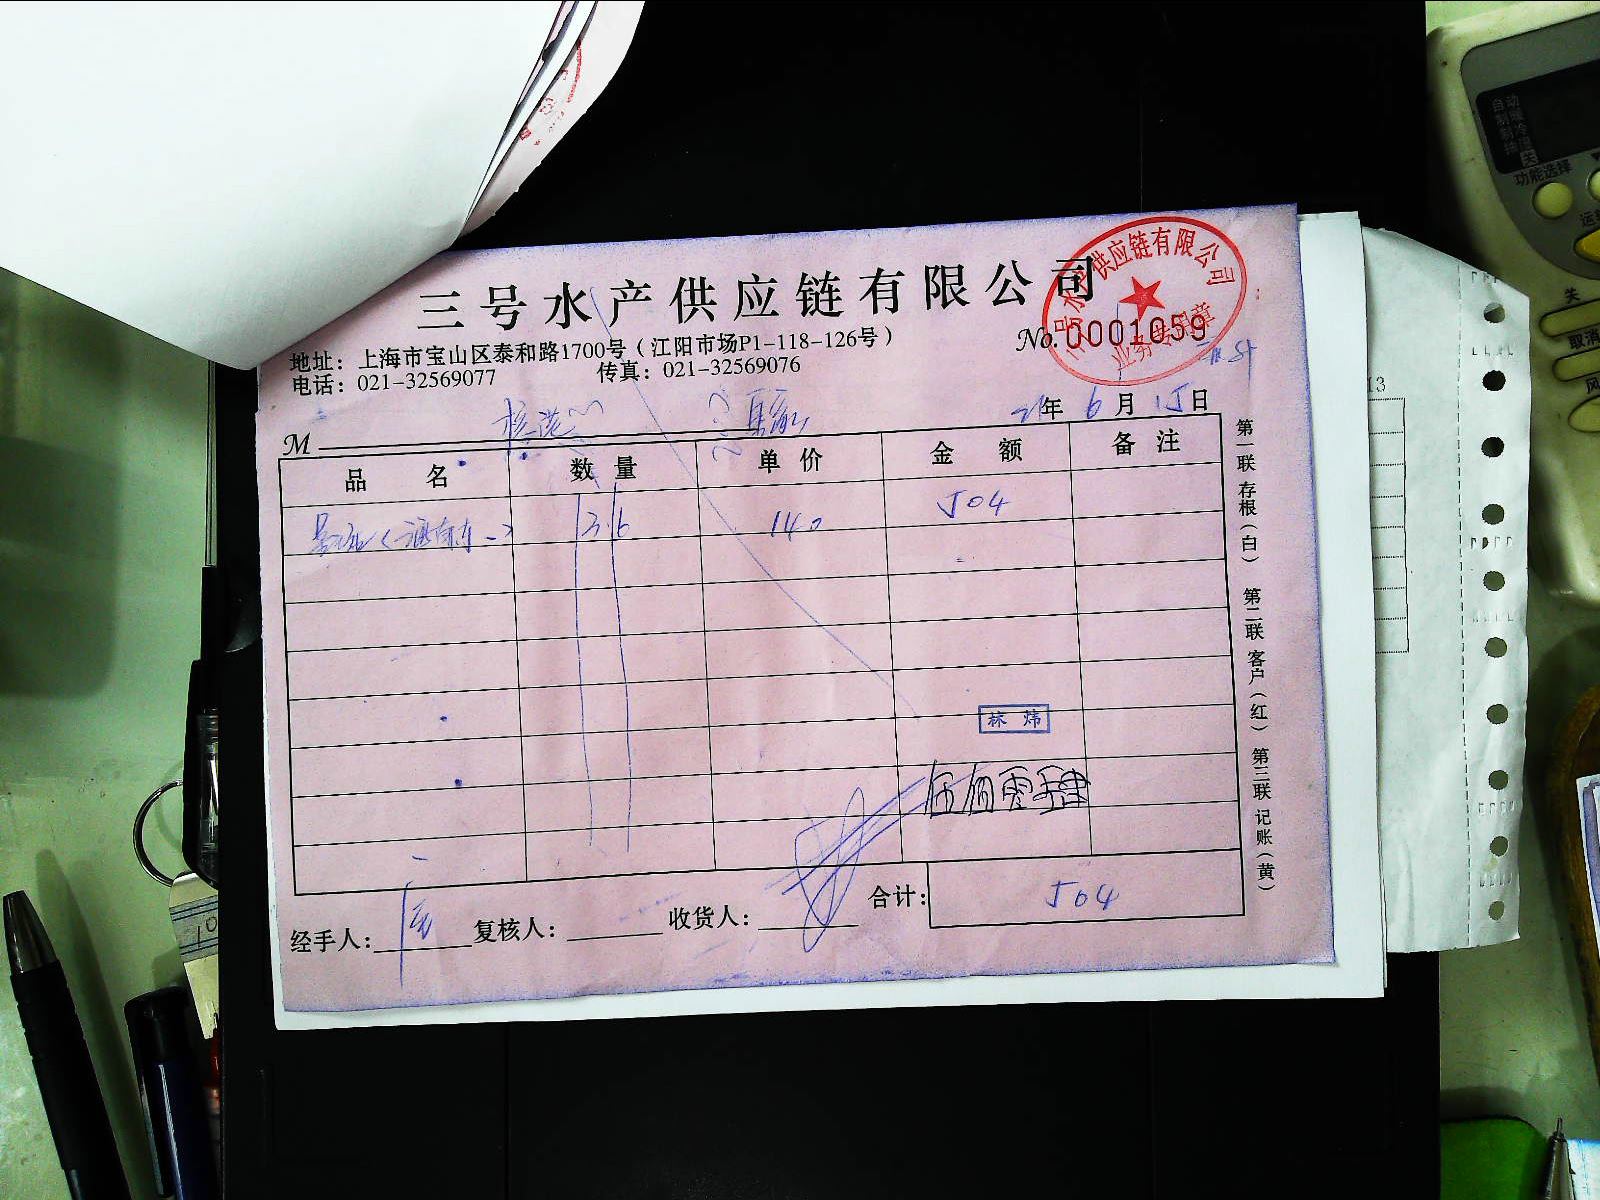 三号水产供应链有限公司
地址：上海市宝山区泰和路1700号（江阳市场P1-118-126号）
No.0001059
电话：021-32569077 传真：021-32569076
供应链有限公司
业务专用章
21年 6月 15日
M
品名 数量 单价 金额 备注
3.6 140 504
林 炜
伍佰零肆
合计： 504
经手人： 复核人： 收货人：
第一联 存根（白） 第二联 客户（红） 第三联 记账（黄）
自动
制暖
制冷
除湿
关
功能选择
关
取消
风
13